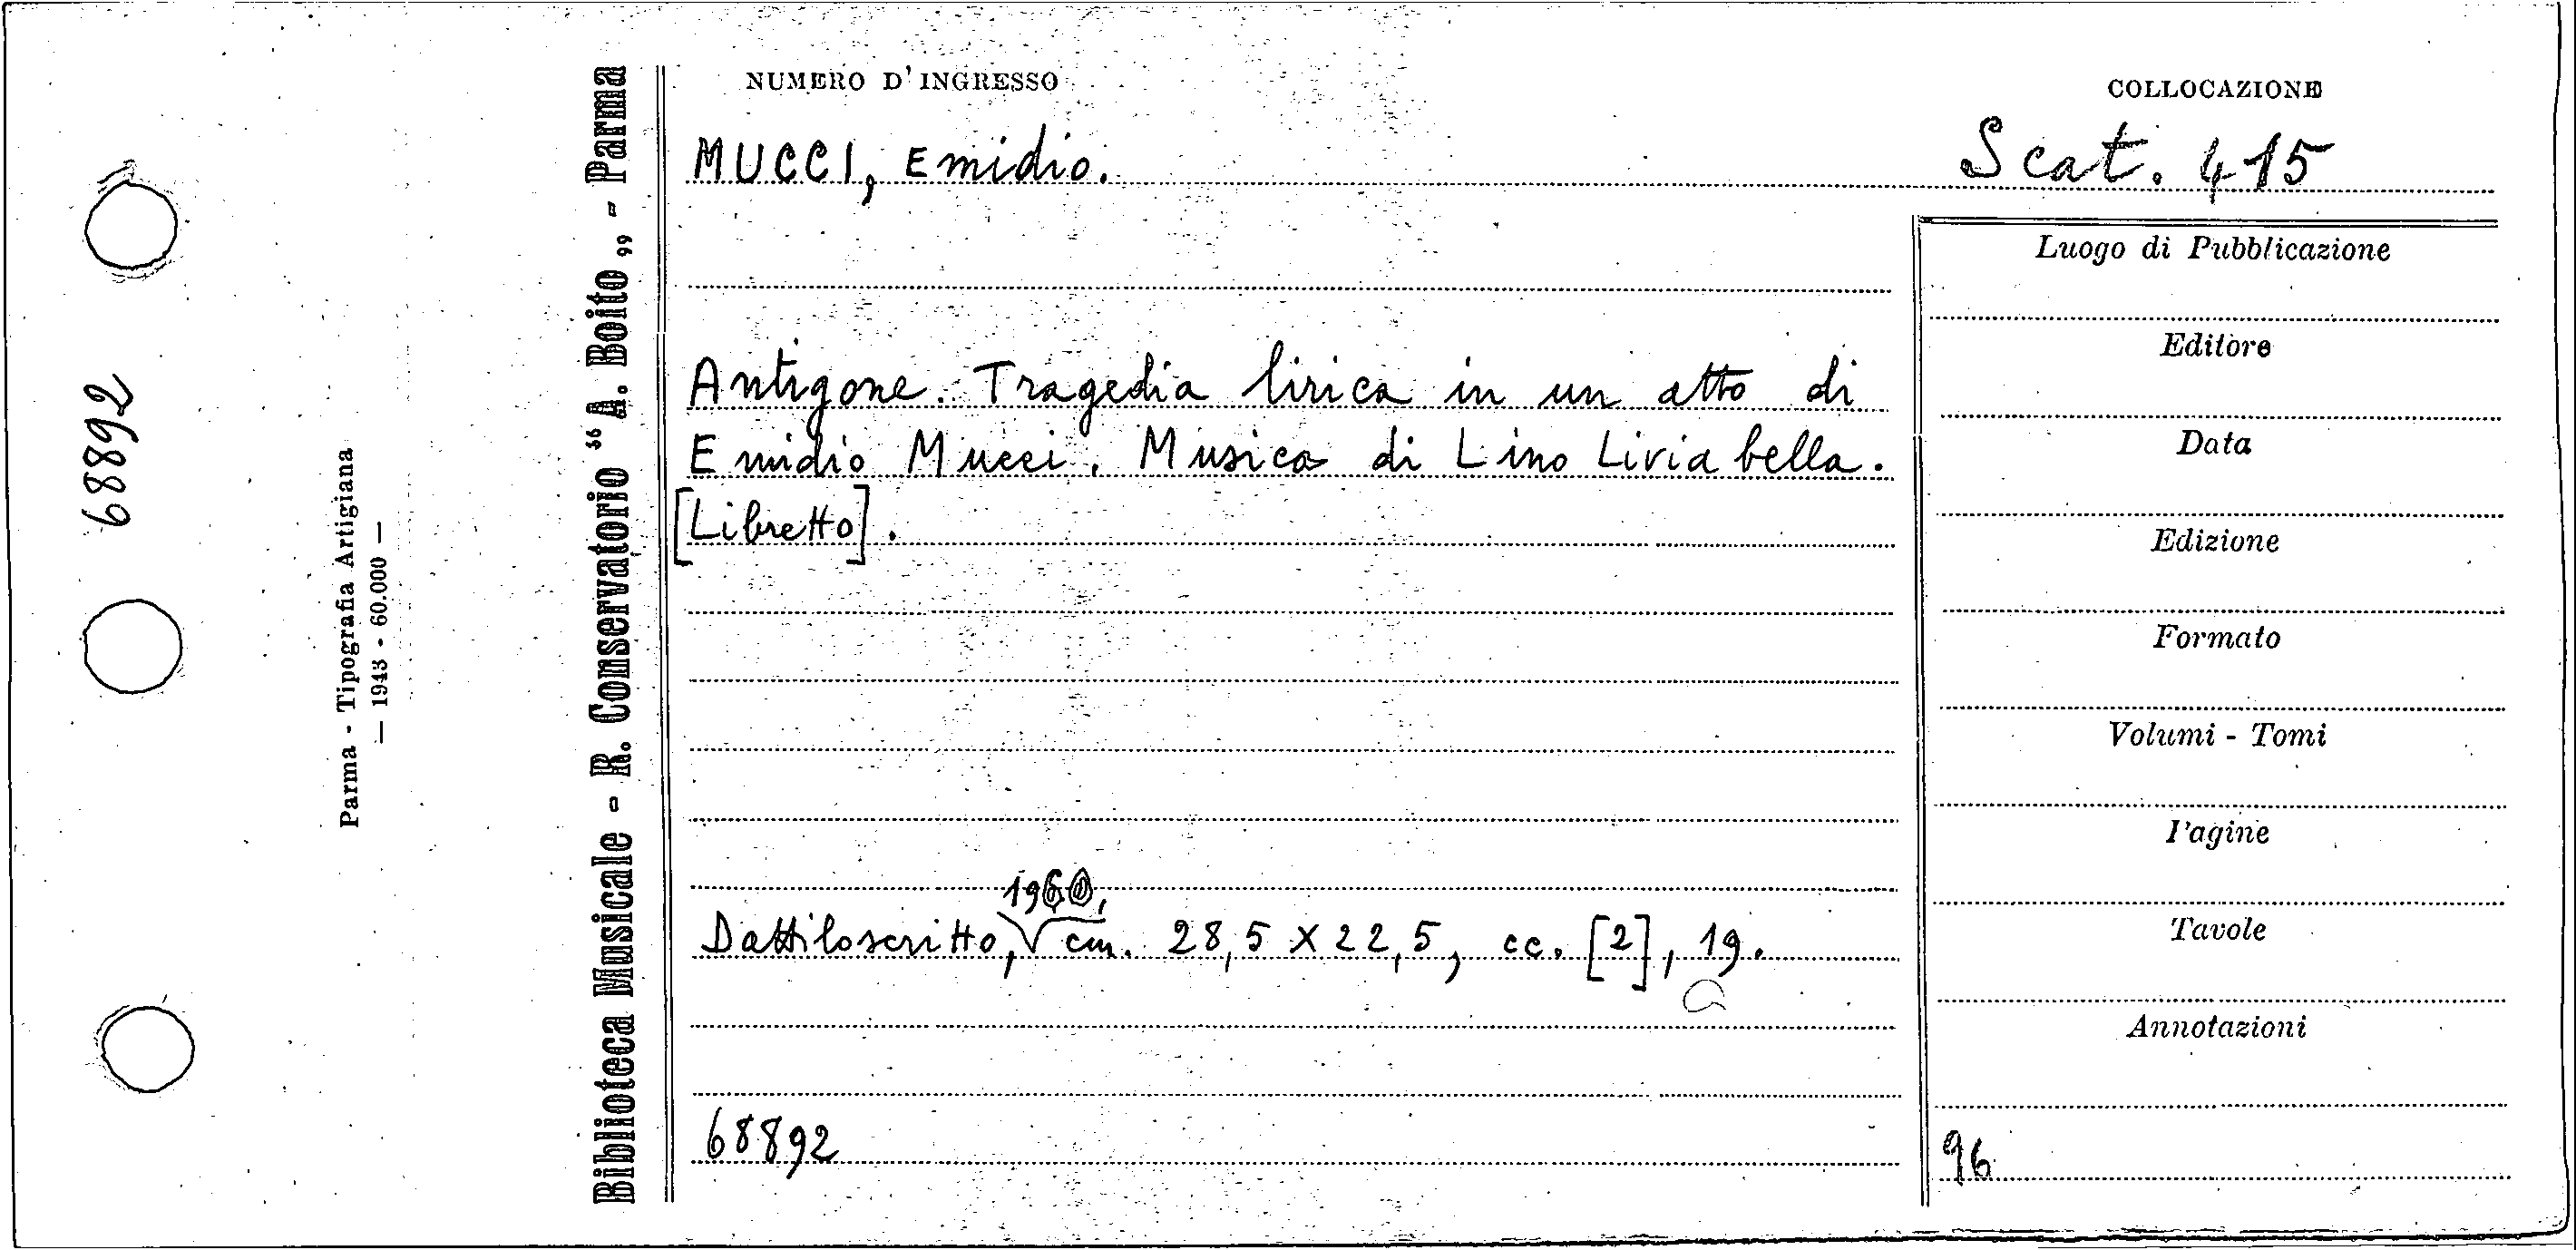 68892
Parma - Tipografia Artigiana
— 1943 - 60.000 —
Biblioteca Musicale - R. Conservatorio “A. Boito„ - Parma
NUMERO D'INGRESSO
COLLOCAZIONE
MUCCI, Emidio.
Scat. 415
Antigone. Tragedia lirica in un atto di
Emidio Mucci. Musica di Lino Liviabella.
[Libretto].
1960,
Dattiloscritto, √ cm. 28,5 x 22,5, cc. [2], 19.
68892
Luogo di Pubblicazione
Editore
Data
Edizione
Formato
Volumi - Tomi
Pagine
Tavole
Annotazioni
96